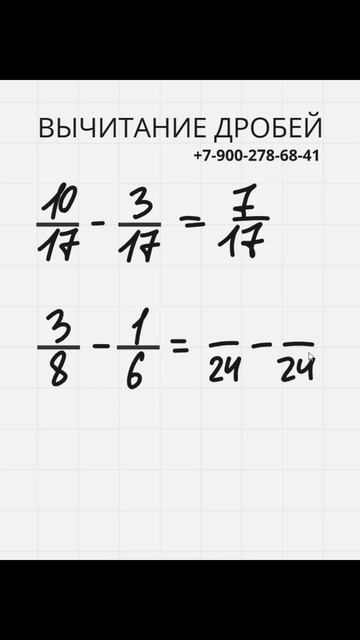 ВЫЧИТАНИЕ ДРОБЕЙ
+7-900-278-68-41
10/17 - 3/17 = 7/17
3/8 - 1/6 = /24 - /24